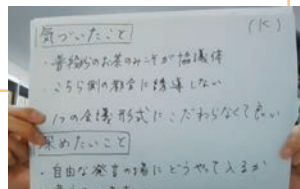 気づいたこと
(K)
・普段のお茶のみこそが協議体
・こちら側の都合に誘導しない
1つの会議形式にこだわらなくて良い
深めたいこと
・自由な発言の場にどうやって入るか